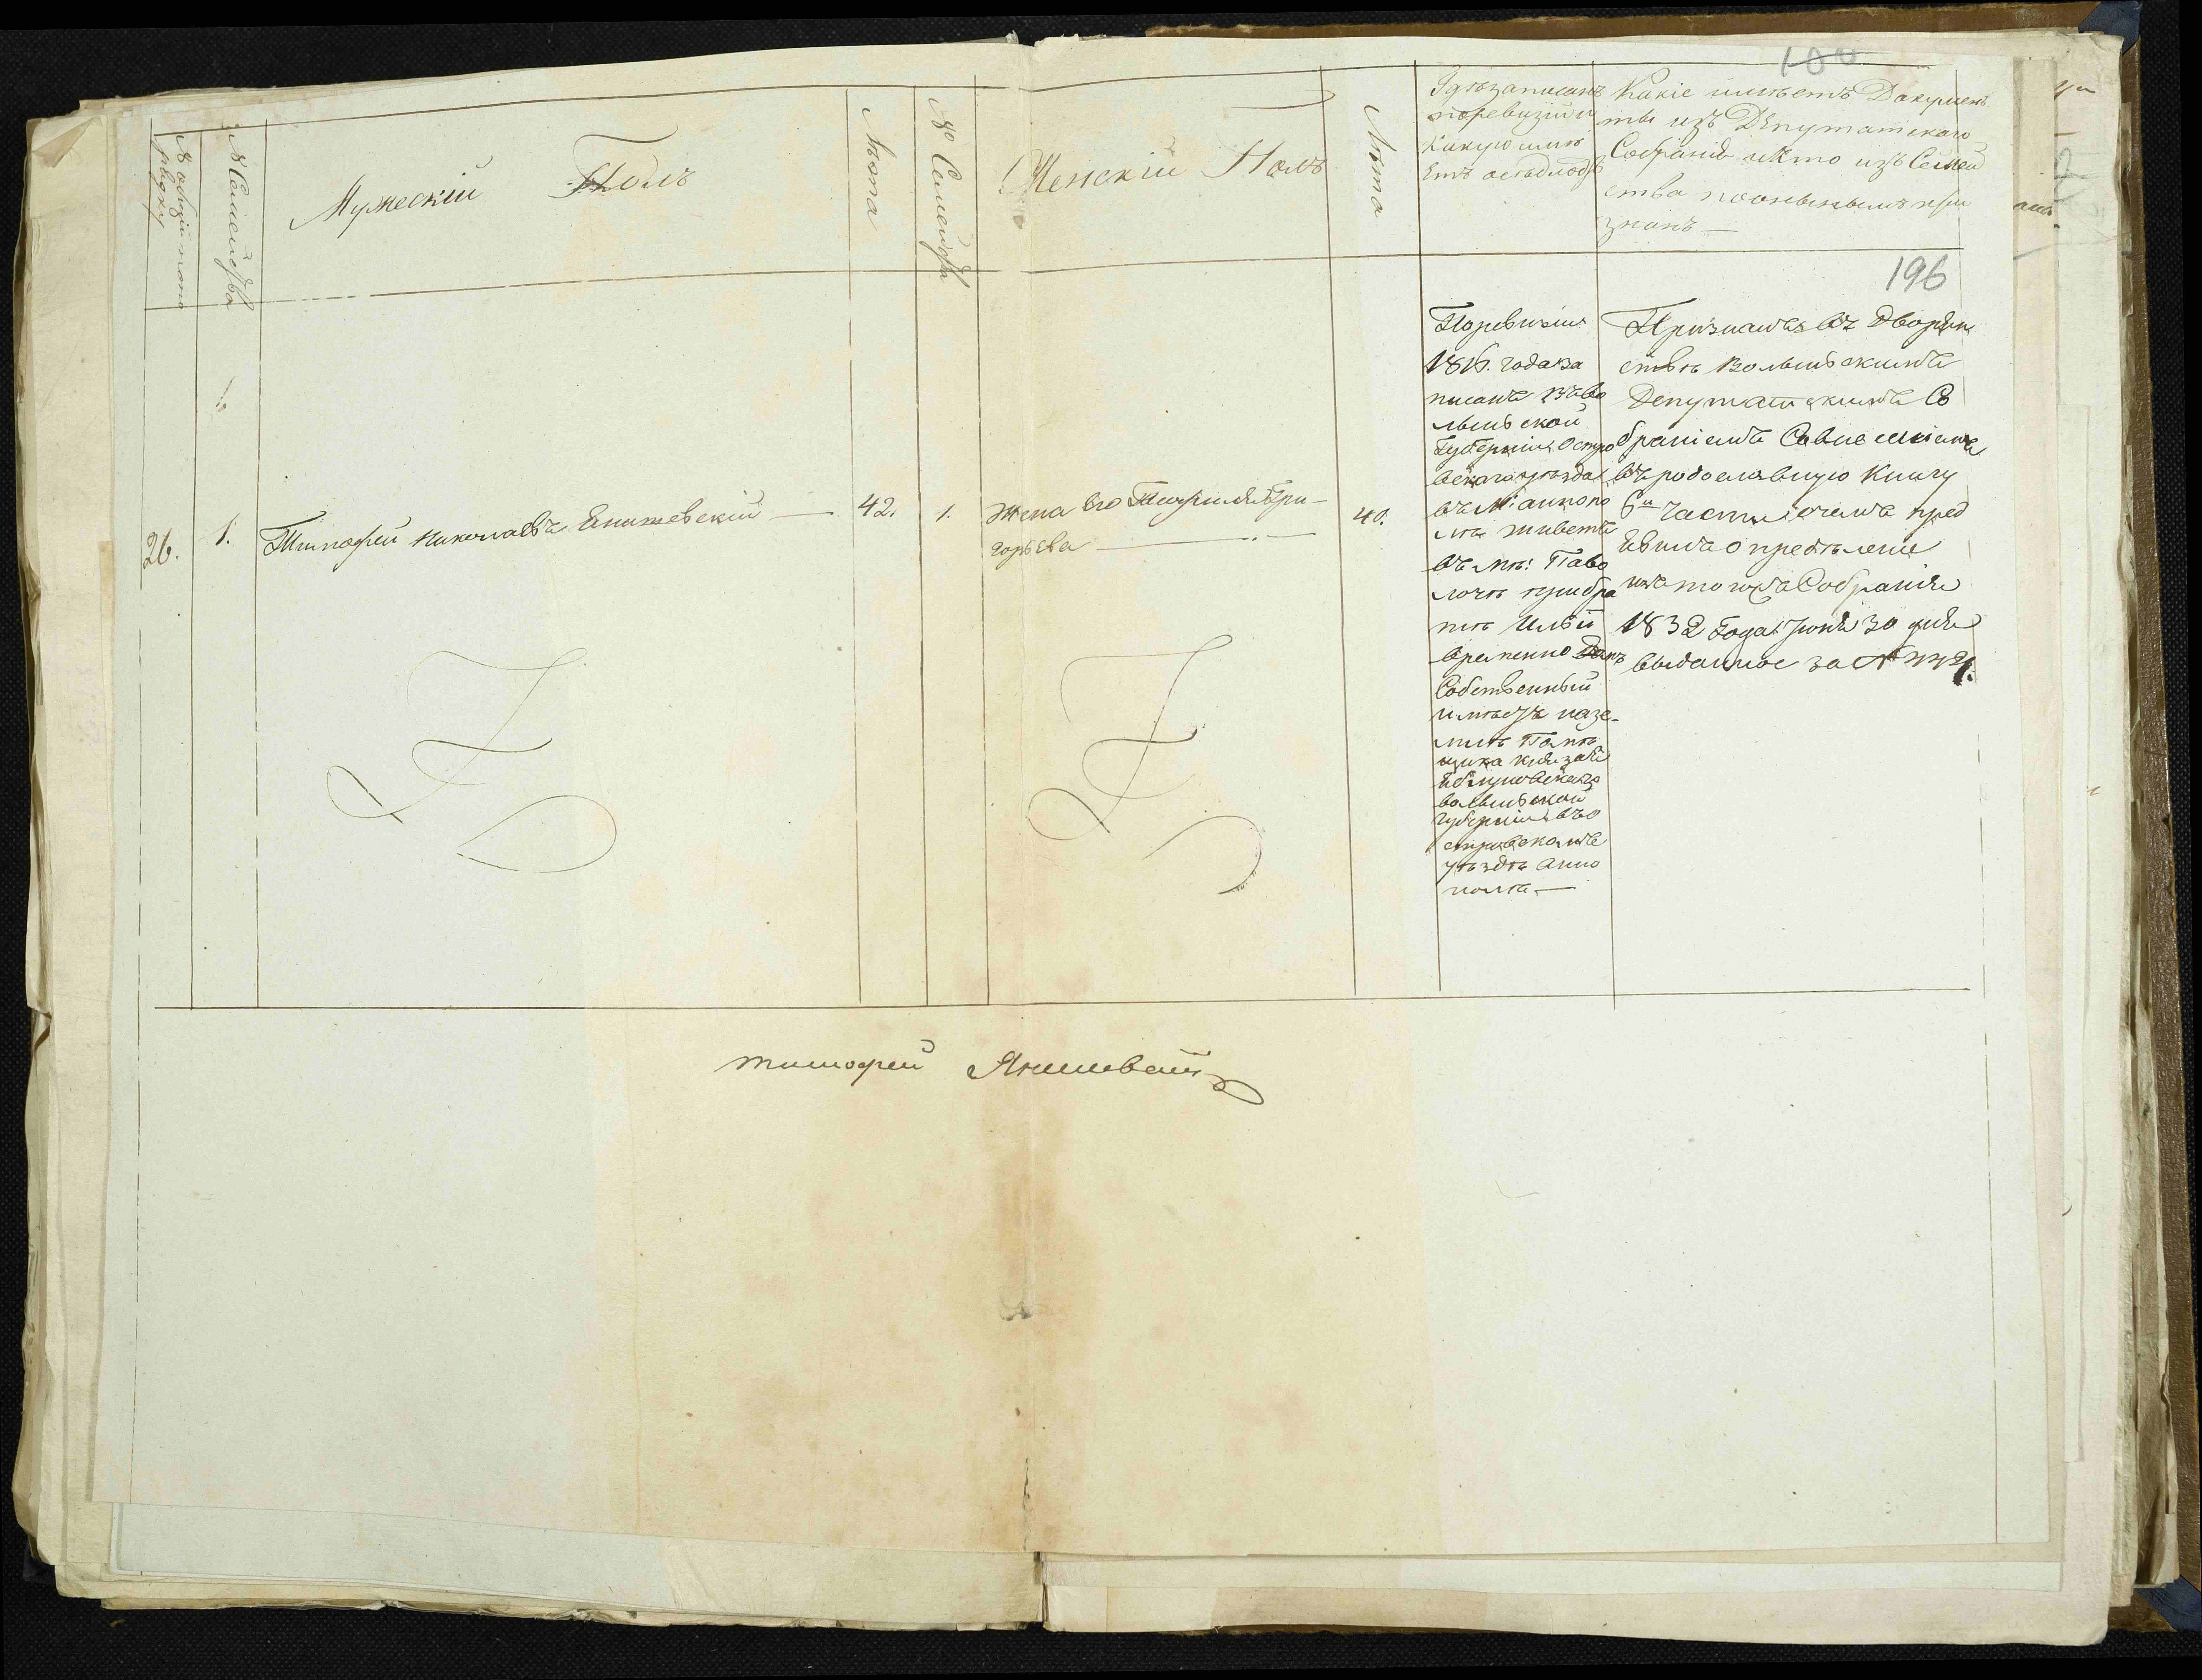 100
196
№ Семейства
Мужескій Полъ
Лѣта
№ Семейства
Женскій Полъ
Лѣта
Гдѣ записанъ
по ревизіи и
какую имѣ
етъ осѣдлость
Какіе имѣетъ Докумен
ты изъ Депутатскаго
Собранія и кто изъ Семей
ства по онымъ при
знанъ —
26.
1.
Тимофей Николаевъ Енишевскій — 42.
1.
Жена его Гри-
горьева —
40.
По ревизіи
1816. года за
писанъ въ Во
лынской
Губерніи Остро
вскаго уѣзда
въ М: аннопо
лѣ живетъ
въ мѣ: Паво
лочѣ при бра
тѣ
временно домъ
Собственный
имѣетъ на зе-
млѣ Помѣ
щика князя
Яблуновскаго
волынской
Губерніи въ О
стровскомъ
уѣздѣ Анно
полѣ —
Признанъ въ дворян
ствѣ Волынскимъ
Депутатскимъ Со
браніемъ Совнесеніемъ
въ родословную Книгу
6й части о чемъ пред
ъвилъ опредѣленіе
того жъ Собранія
1832 Года Іюня 30 дня
выданное за №
тимофей Янишевскій